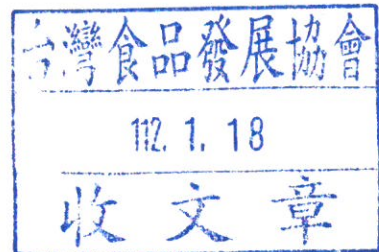 台灣食品發展協會
112. 1. 18
收文章